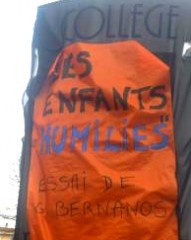 COLLEGE
LES
ENFANTS
HUMILIÉS"
ESSAI DE
G. BERNANOS